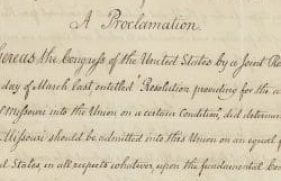 A Proclamation.
Whereas the Congress of the United States by a Joint Re
day of March last entitled "Resolution providing for the a
of Missouri into the Union on a certain Condition", did determin
Missouri should be admitted into this Union on an equal f
States, in all respects whatever, upon the fundamental Con